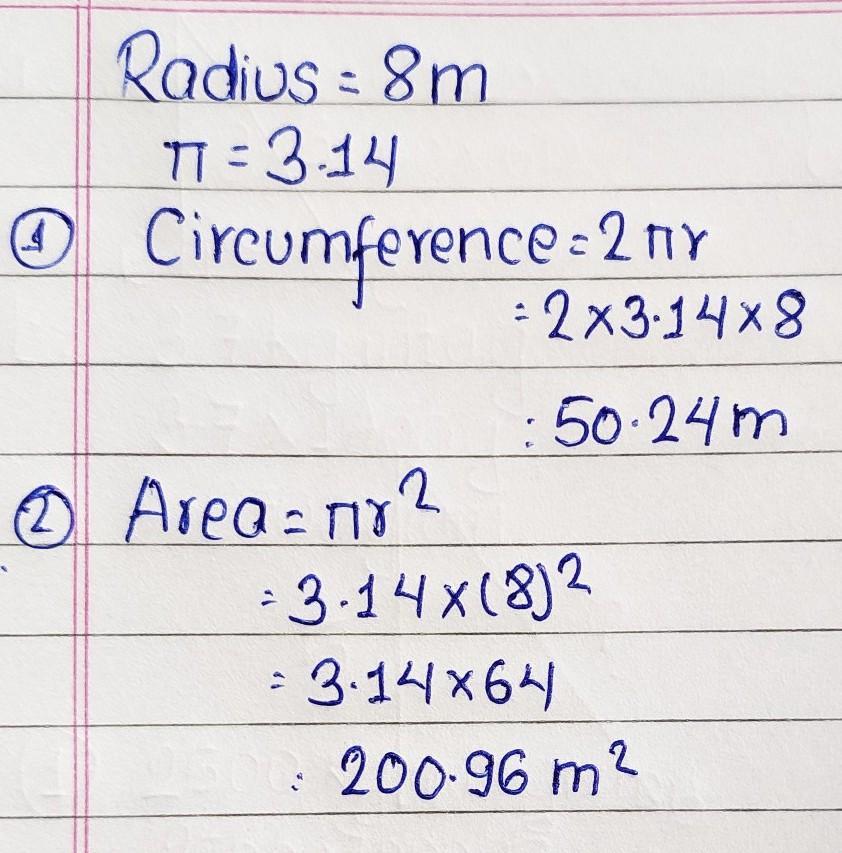 Radius = 8m
π = 3.14
① Circumference = 2πr
= 2×3.14×8
: 50.24m
② Area = πr²
= 3.14×(8)²
= 3.14×64
: 200.96 m²